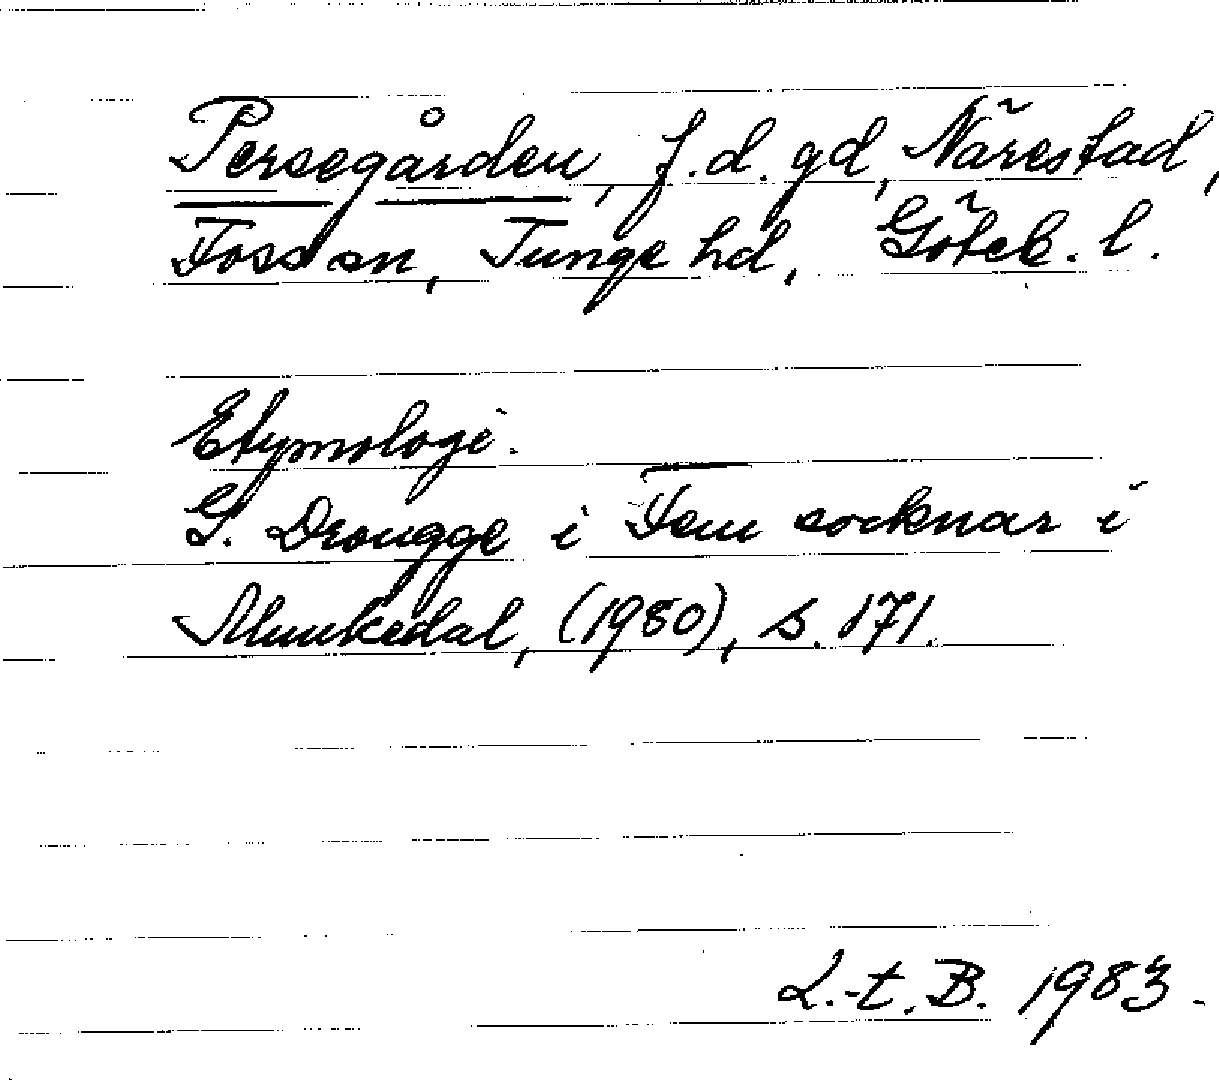 Persegården, f.d. gd, Närestad,
Foss sn, Tunge hd, Göteb. l.
Etymologi.
G. Drougge i Fem socknar i
Munkedal, (1980), s. 171.
L.-t. B. 1983.